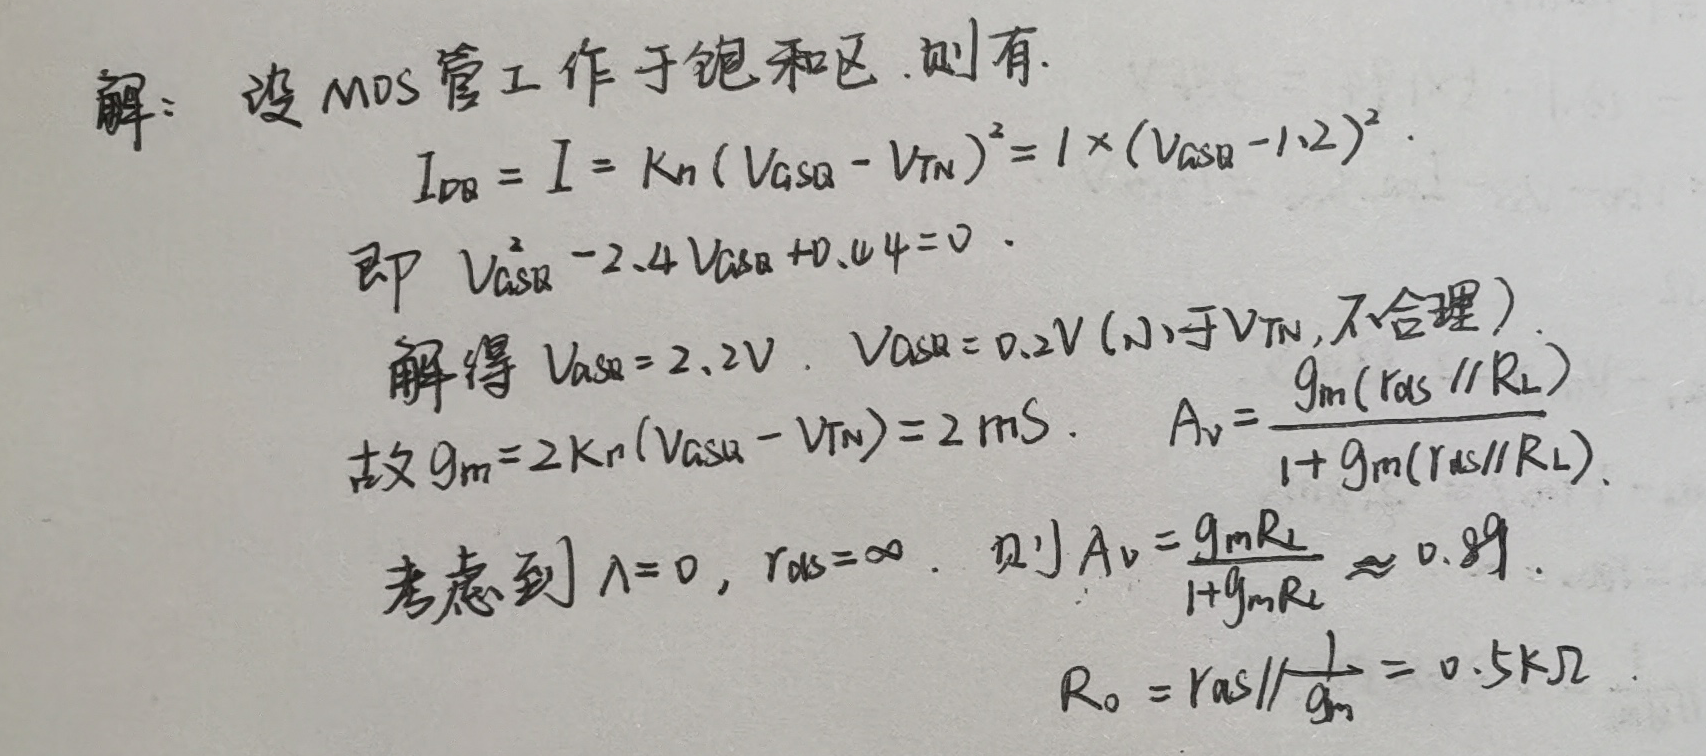 解：设MOS管工作于饱和区.则有.
I_DQ = I = Kn(V_GSQ - V_TN)² = 1×(V_GSQ - 1.2)².
即 V_GSQ² - 2.4V_GSQ + 0.44 = 0.
解得 V_GSQ = 2.2V. V_GSQ = 0.2V(小于V_TN,不合理).
故 gm = 2Kn(V_GSQ - V_TN) = 2mS. Av = gm(rds//RL) / 1+gm(rds//RL).
考虑到 λ=0, rds=∞. 则 Av = gmRL / 1+gmRL ≈ 0.89.
Ro = rds//1/gm = 0.5kΩ.